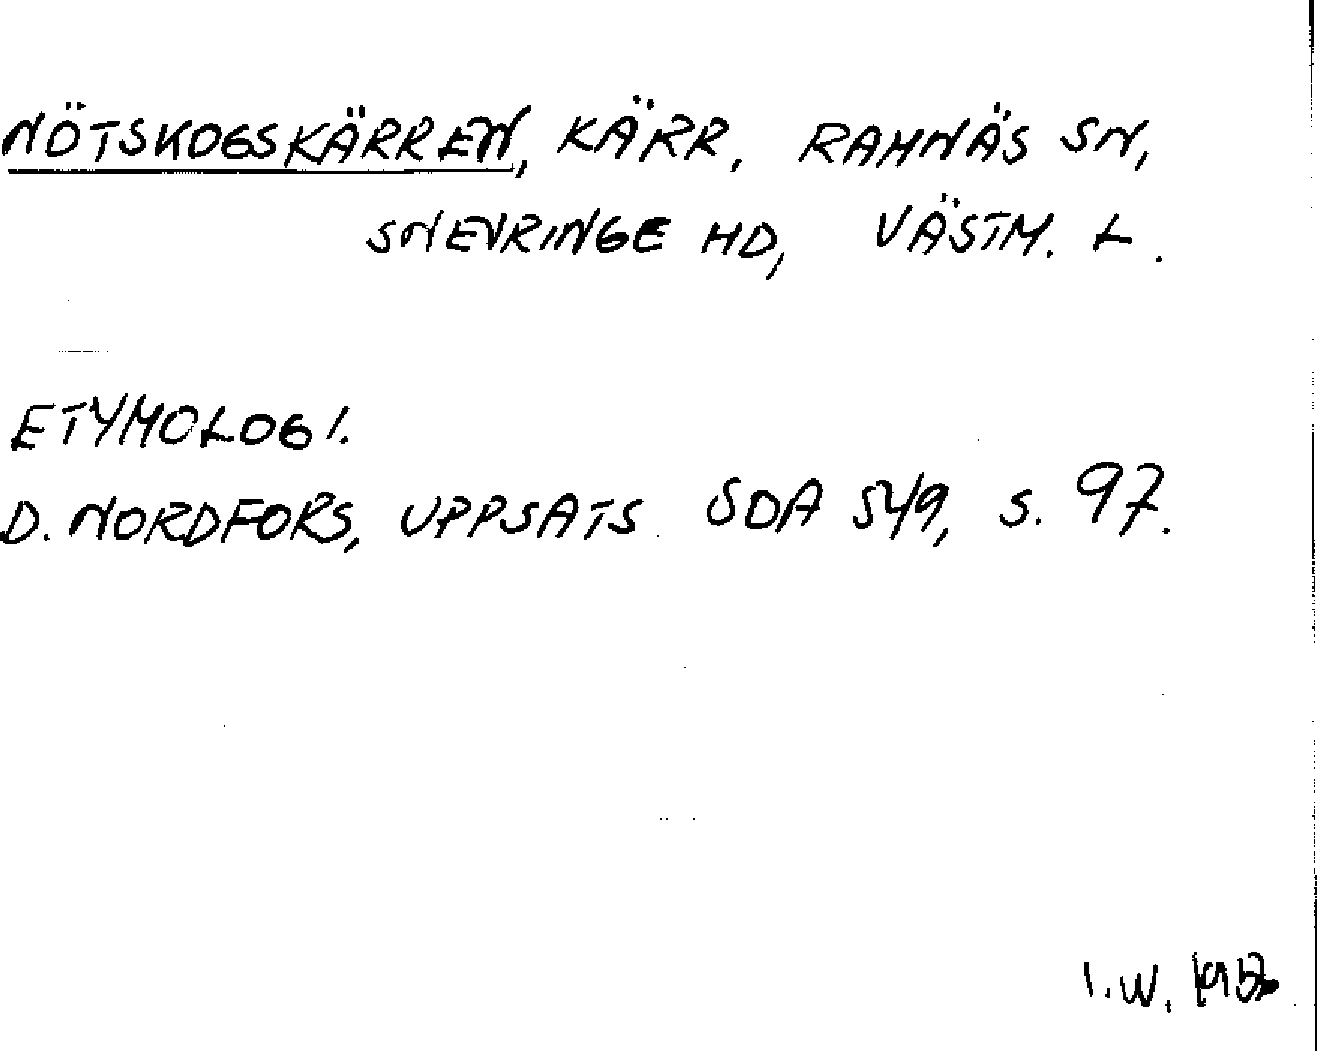 NÖTSKOGSKÄRREN, KÄRR, RAMNÄS SN,
SNEVRINGE HD, VÄSTM. L.
ETYMOLOGI.
D. NORDFORS, UPPSATS SOA 549, s. 97.
I.W.